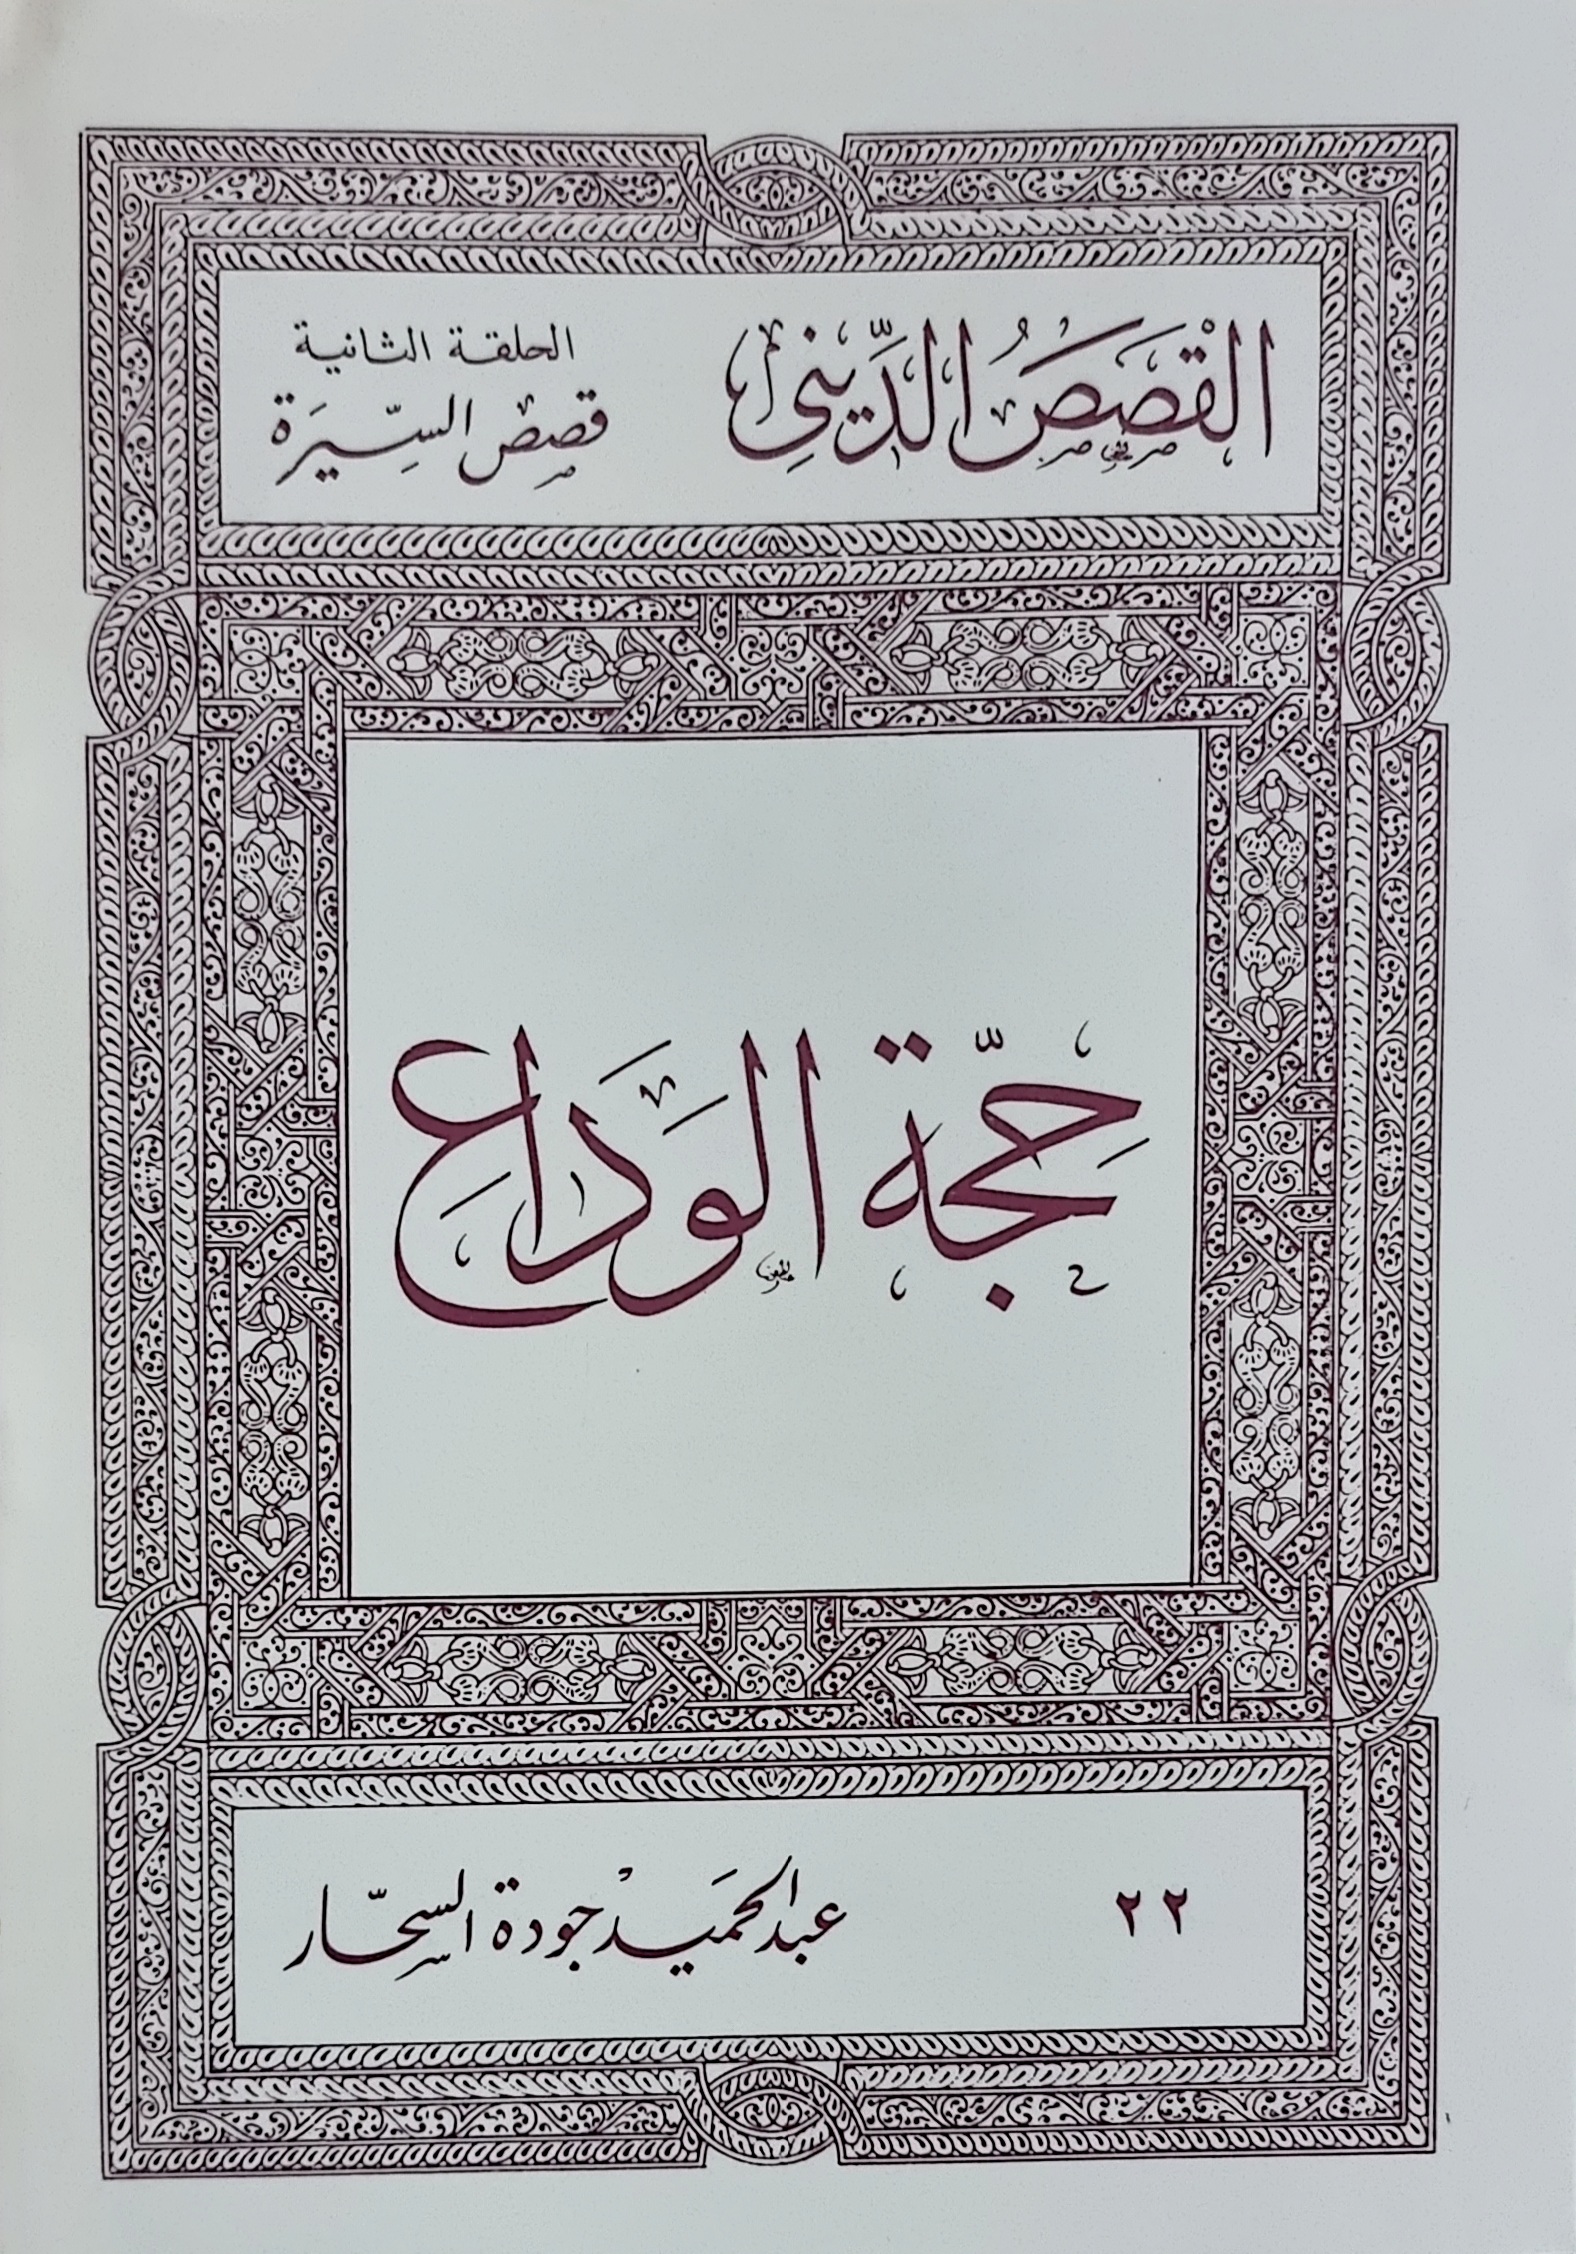 القصص الديني
الحلقة الثانية
قصص السيرة
حجة الوداع
٢٢
عبد الحميد جودة السحار